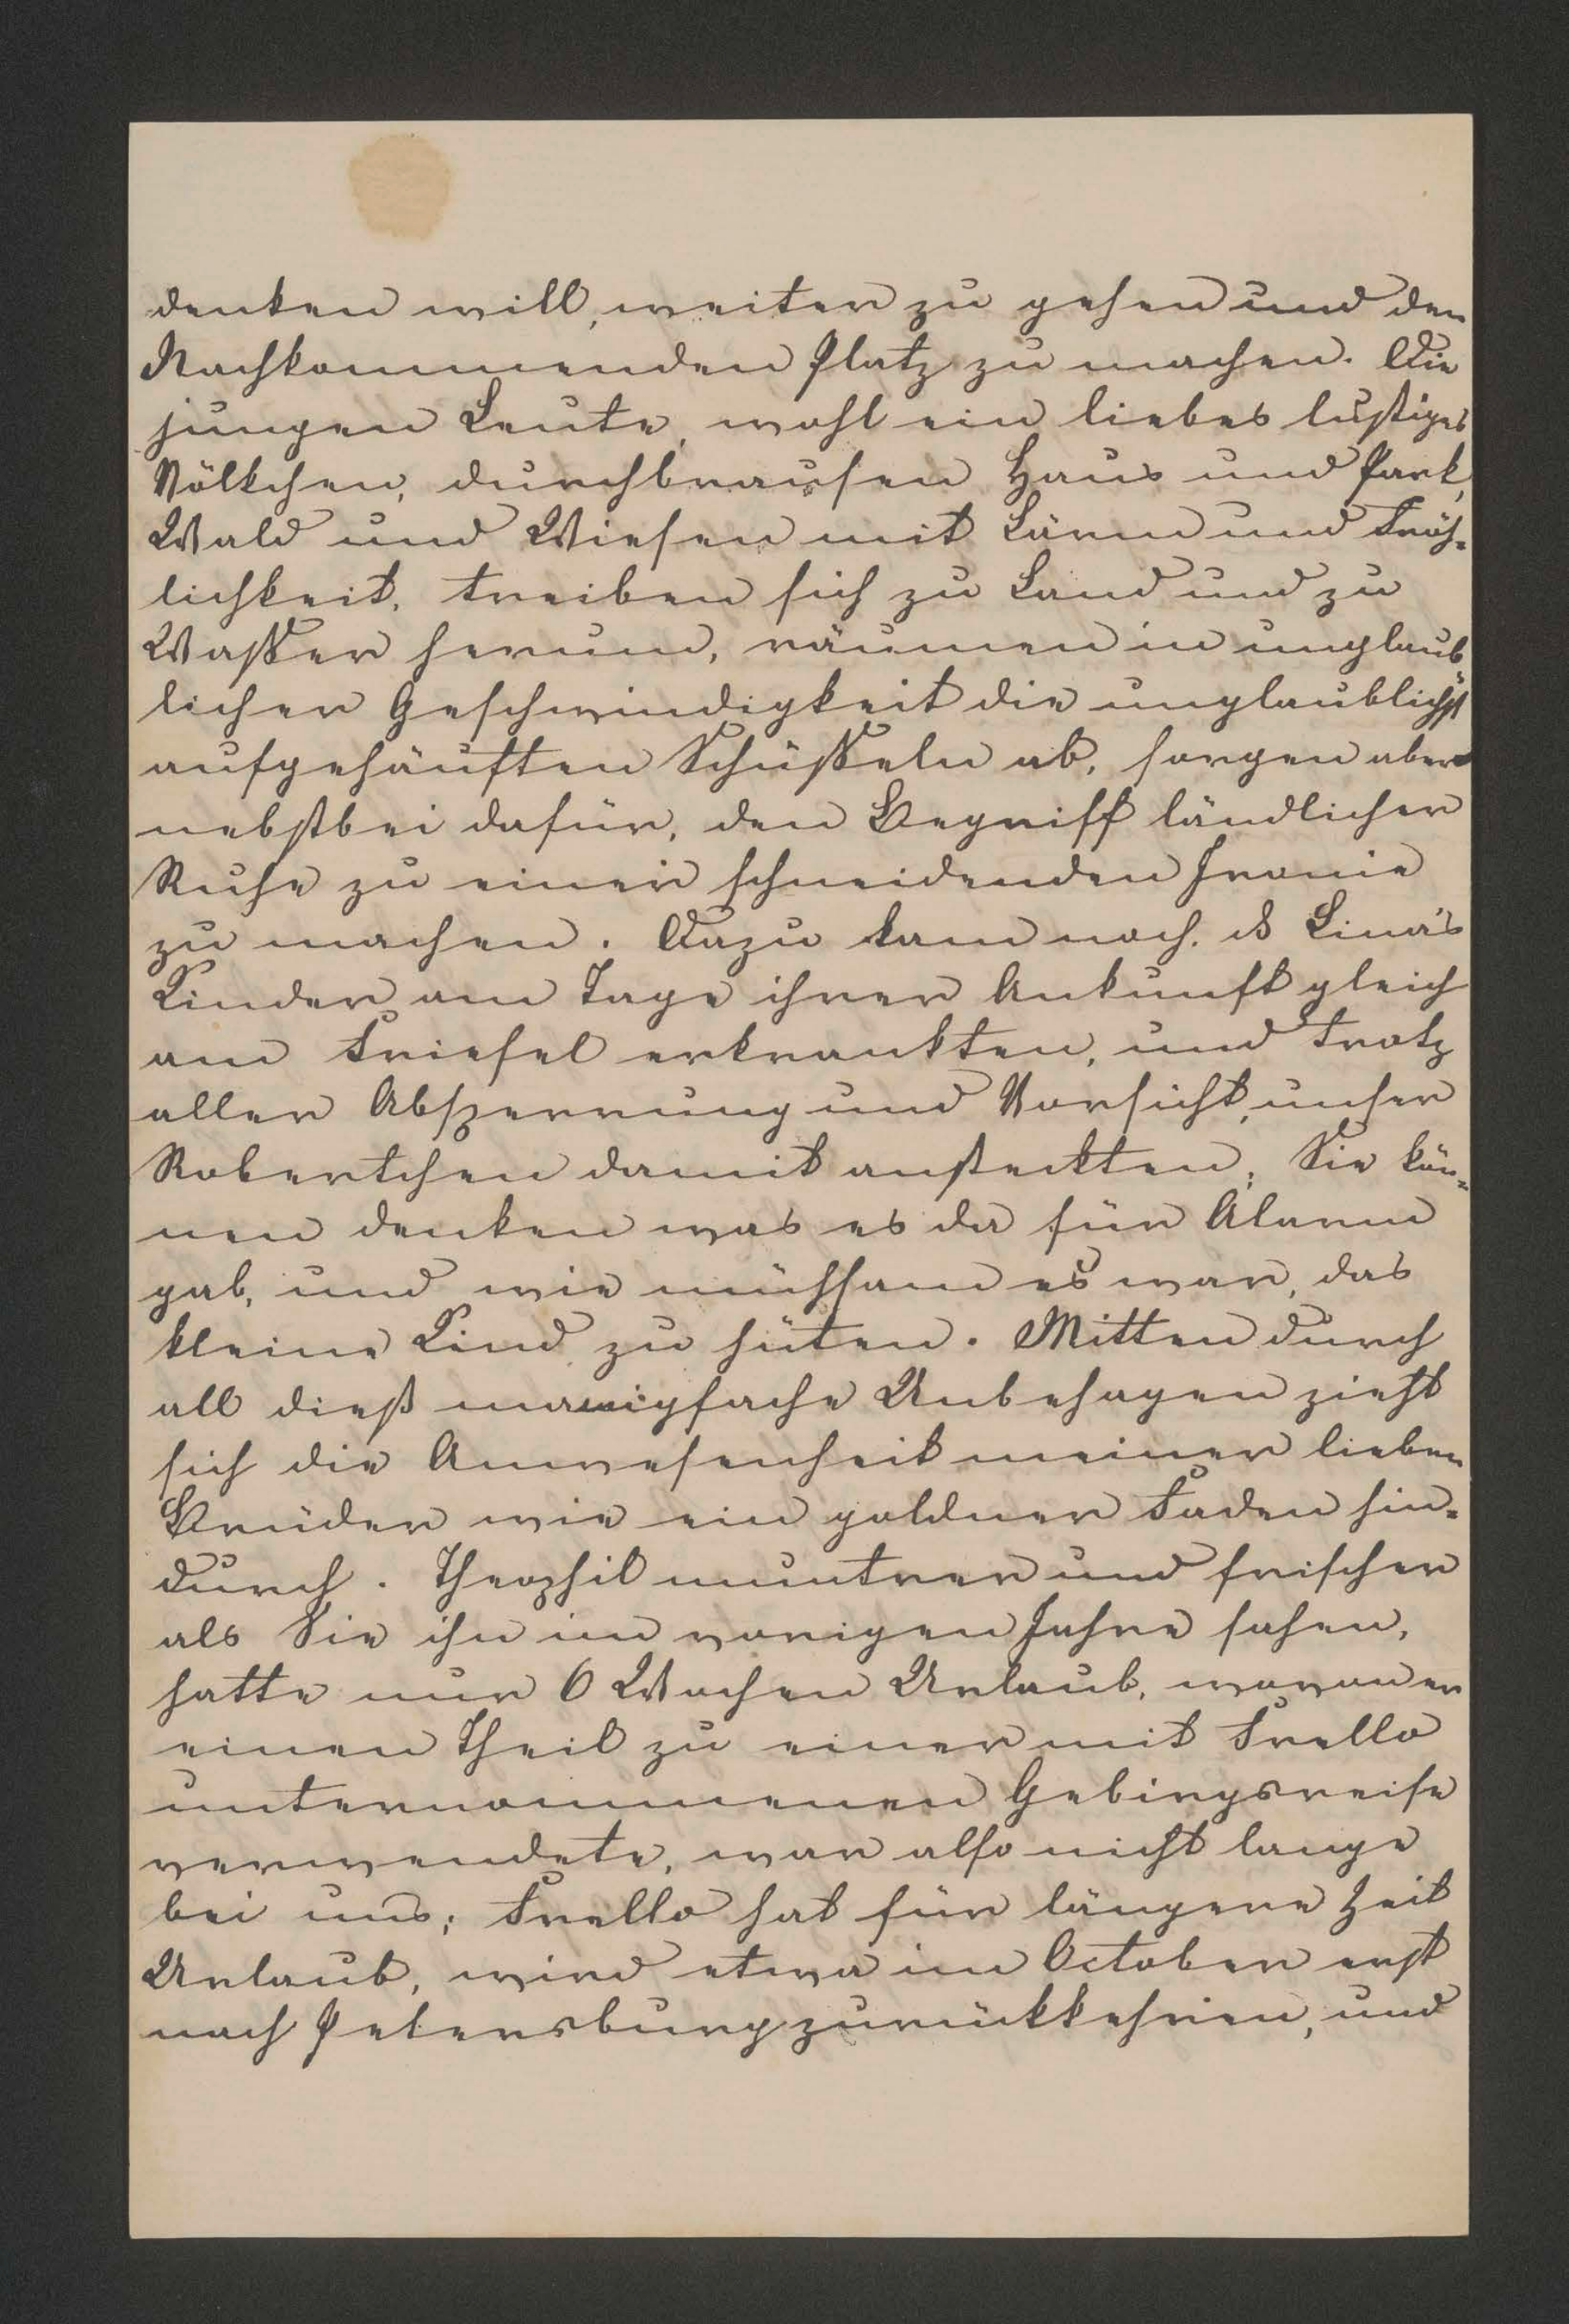 denken will, weiter zu gehen und den
Nachkommenden Platz zu machen. Die
jungen Leute, wohl ein liebes lustiges
Völkchen, durchbrausen Haus und Park,
Wald und Wiesen mit Lärm und Fröh-
lichkeit, treiben sich zu Land und zu
Wasser herum, räumen in unglaub-
licher Geschwindigkeit die unglaublichst
aufgehäuften Schüsseln ab, sorgen aber
nebstbei dafür, den Begriff ländlicher
Ruhe zu einer schneidenden Ironie
zu machen. Dazu kam noch, dß Lina's
Kinder am Tage ihrer Ankunft gleich
am Friesel erkrankten, und trotz
aller Absperrung und Vorsicht, unser
Robertchen damit ansteckten; Sie kön-
nen denken was es da für Alarm
gab, und wie mühsam es war, das
kleine Kind zu hüten. Mitten durch
all dieß manigfache Unbehagen zieht
sich die Anwesenheit meiner lieben
Brüder wie ein goldner Faden hin-
durch. Theophil muntrer und frischer
als Sie ihn im vorigen Jahre sahen,
hatte nur 6 Wochen Urlaub, wovon er
einen Theil zu einer mit Frello
unternommenen Gebirgsreise
verwendete, war also nicht lange
bei uns; Frello hat für längere Zeit
Urlaub, wird etwa im October erst
nach Petersburg zurückkehren, und